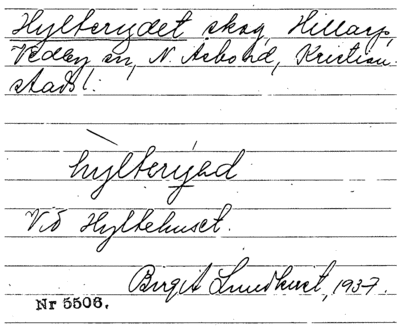 Hylterydet skog, Hillarp,
Vedby sn, N. Åsbo hd, Kristian-
stads l.
hylteryed
Vid Hyltehuset.
Birgit Lundkvist, 1937.
Nr 5506.